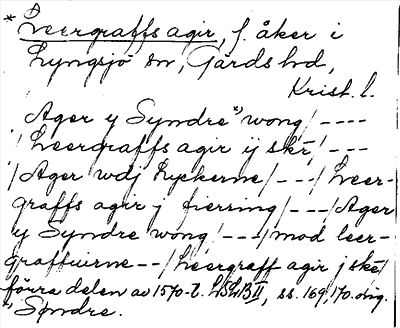 * Leergraffs agir, f. åker i
Lyngsjö sn, Gärds hd,
Krist. l.
Ager y Syndre *) wong / - - - -
/ Leergraffs agir ij skr̄ / - - -
/ Ager wdj Lyckerne / - - - / Leer-
graffs agir j fierring / - - - / Ager
y Syndre wong / - - - / mod leer-
graffuirne - - / Leergraff agir j skr̄ /
förra delen av 1570-t. LSLB II, ss. 169, 170. orig.
*) Søndre.